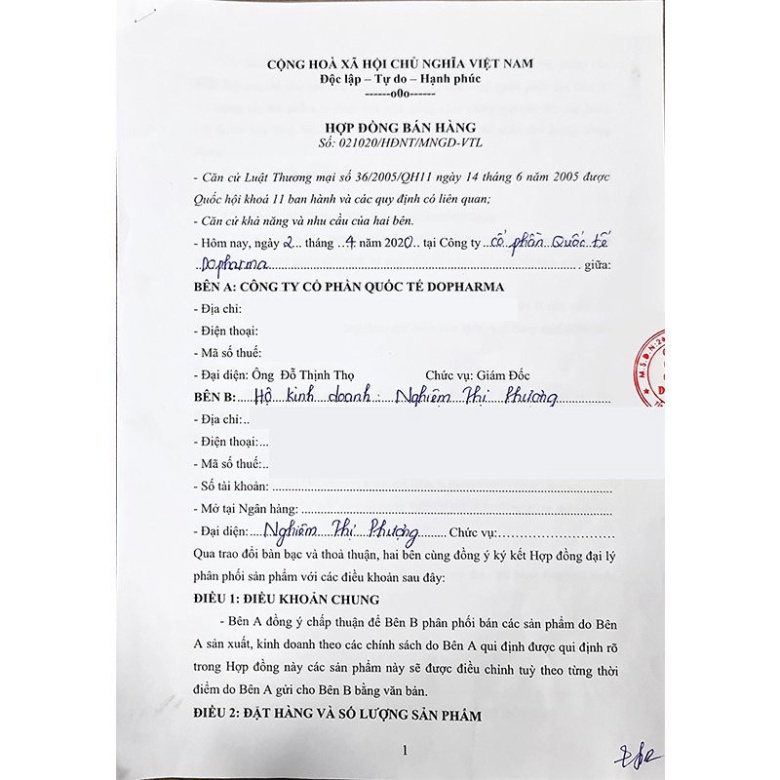 CỘNG HOÀ XÃ HỘI CHỦ NGHĨA VIỆT NAM
Độc lập – Tự do – Hạnh phúc
------o0o------
HỢP ĐỒNG BÁN HÀNG
Số: 021020/HĐNT/MNGD-VTL
- Căn cứ Luật Thương mại số 36/2005/QH11 ngày 14 tháng 6 năm 2005 được
Quốc hội khoá 11 ban hành và các quy định có liên quan;
- Căn cứ khả năng và nhu cầu của hai bên.
- Hôm nay, ngày 2 tháng 4 năm 2020 tại Công ty cổ phần Quốc tế
Dopharma giữa:
BÊN A: CÔNG TY CỔ PHẦN QUỐC TẾ DOPHARMA
- Địa chỉ:
- Điện thoại:
- Mã số thuế:
- Đại diện: Ông Đỗ Thịnh Thọ Chức vụ: Giám Đốc
BÊN B: Hộ kinh doanh: Nghiêm Thị Phượng
- Địa chỉ:..
- Điện thoại:...
- Mã số thuế:..
- Số tài khoản:
- Mở tại Ngân hàng:
- Đại diện: Nghiêm Thị Phượng Chức vụ:
Qua trao đổi bàn bạc và thoả thuận, hai bên cùng đồng ý ký kết Hợp đồng đại lý
phân phối sản phẩm với các điều khoản sau đây:
ĐIỀU 1: ĐIỀU KHOẢN CHUNG
- Bên A đồng ý chấp thuận để Bên B phân phối bán các sản phẩm do Bên
A sản xuất, kinh doanh theo các chính sách do Bên A qui định được qui định rõ
trong Hợp đồng này các sản phẩm này sẽ được điều chỉnh tuỳ theo từng thời
điểm do Bên A gửi cho Bên B bằng văn bản.
ĐIỀU 2: ĐẶT HÀNG VÀ SỐ LƯỢNG SẢN PHẨM
1